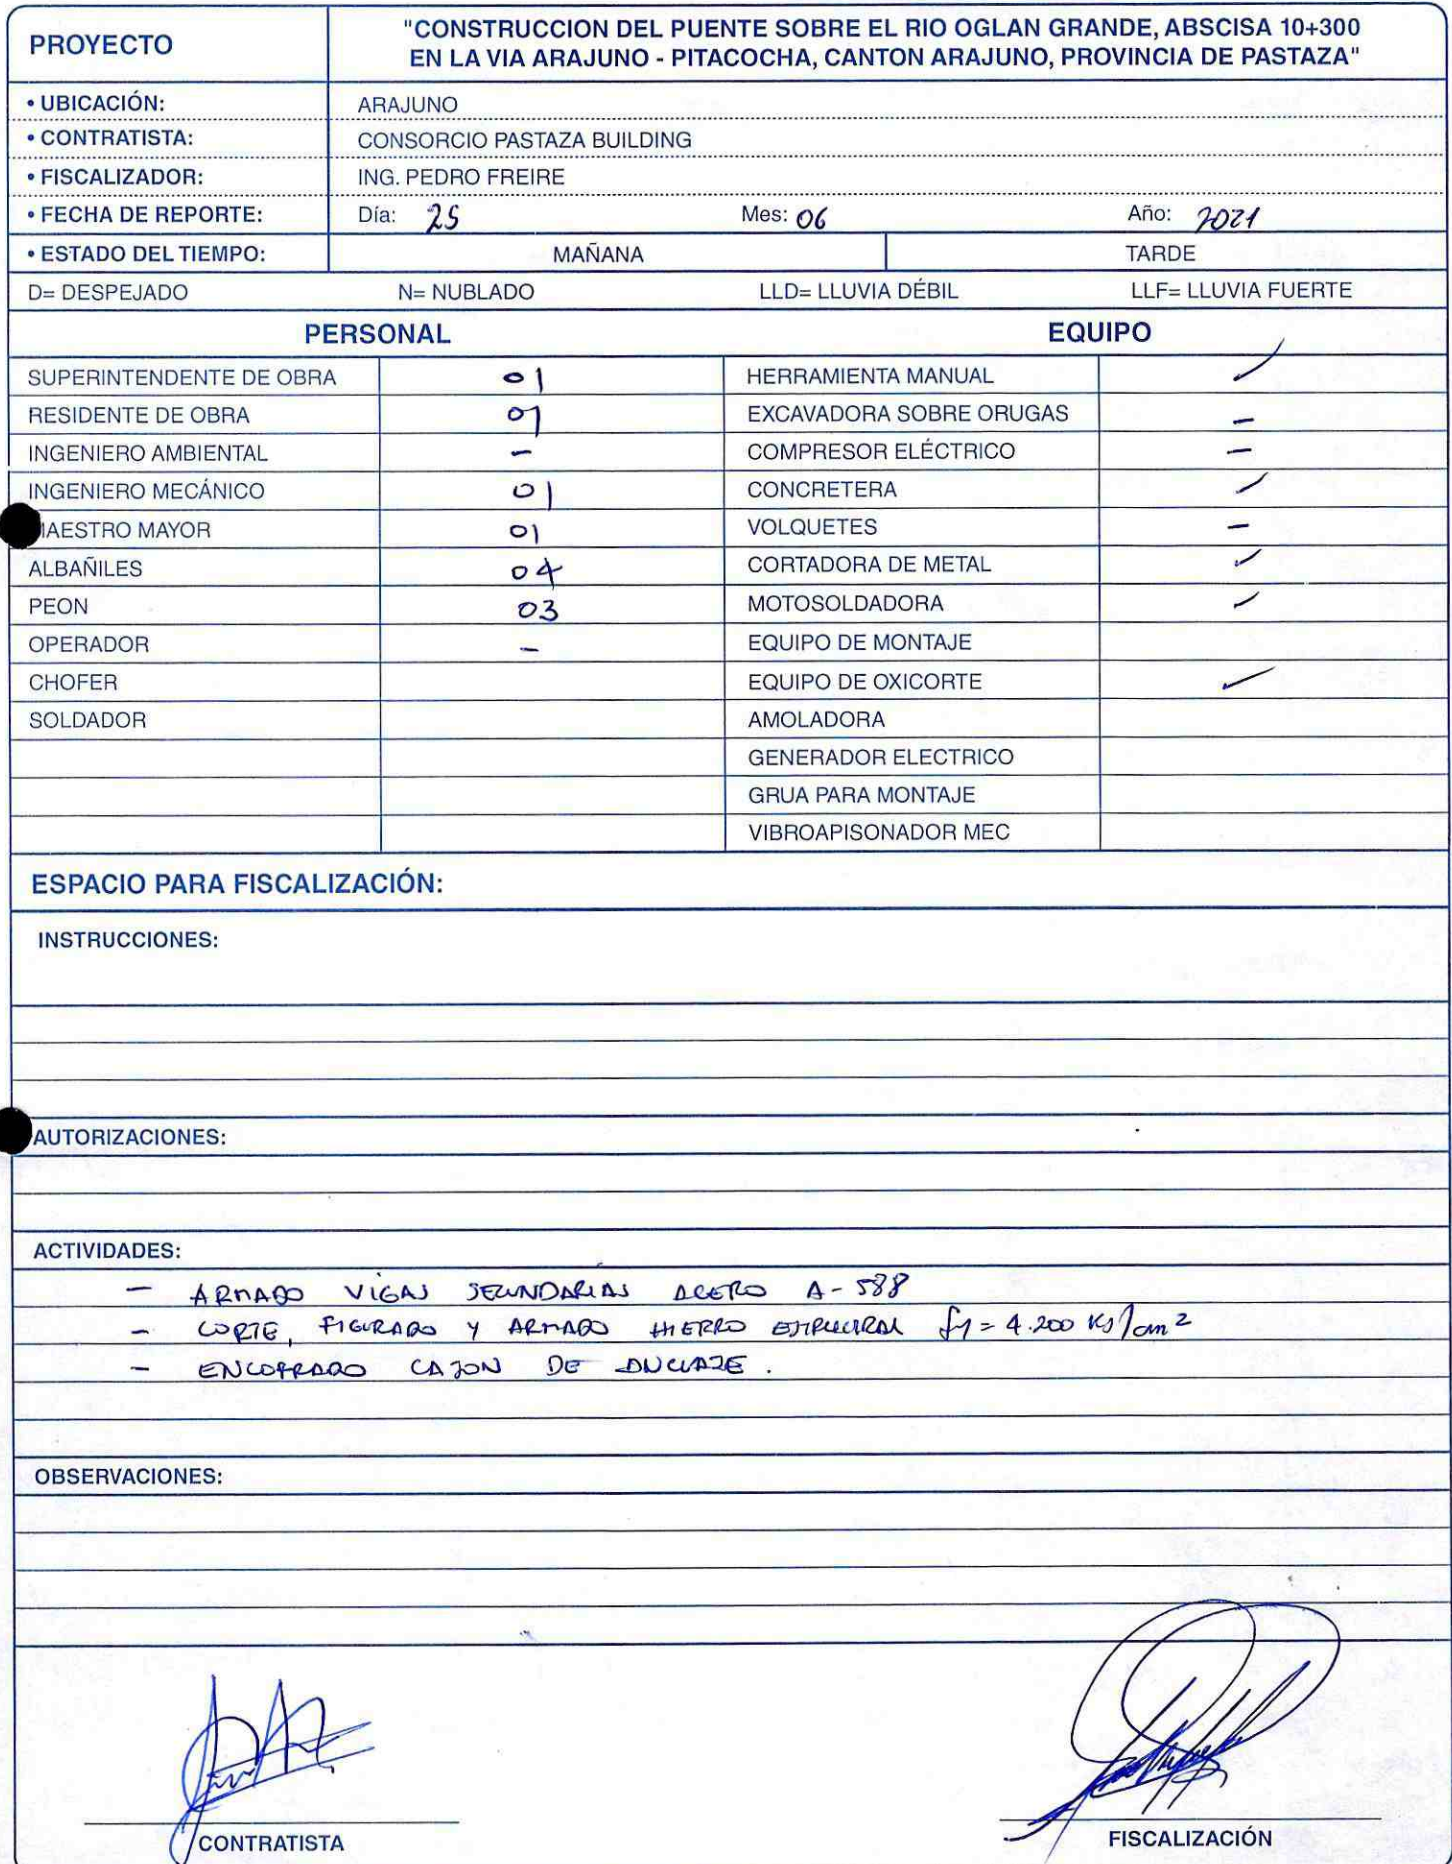 PROYECTO
"CONSTRUCCION DEL PUENTE SOBRE EL RIO OGLAN GRANDE, ABSCISA 10+300
EN LA VIA ARAJUNO - PITACOCHA, CANTON ARAJUNO, PROVINCIA DE PASTAZA"
• UBICACIÓN: ARAJUNO
• CONTRATISTA: CONSORCIO PASTAZA BUILDING
• FISCALIZADOR: ING. PEDRO FREIRE
• FECHA DE REPORTE: Día: 25 Mes: 06 Año: 2021
• ESTADO DEL TIEMPO: MAÑANA TARDE
D= DESPEJADO N= NUBLADO LLD= LLUVIA DÉBIL LLF= LLUVIA FUERTE
PERSONAL EQUIPO
SUPERINTENDENTE DE OBRA 01 HERRAMIENTA MANUAL ✓
RESIDENTE DE OBRA 01 EXCAVADORA SOBRE ORUGAS –
INGENIERO AMBIENTAL – COMPRESOR ELÉCTRICO –
INGENIERO MECÁNICO 01 CONCRETERA ✓
MAESTRO MAYOR 01 VOLQUETES –
ALBAÑILES 04 CORTADORA DE METAL ✓
PEON 03 MOTOSOLDADORA ✓
OPERADOR – EQUIPO DE MONTAJE
CHOFER EQUIPO DE OXICORTE ✓
SOLDADOR AMOLADORA
GENERADOR ELECTRICO
GRUA PARA MONTAJE
VIBROAPISONADOR MEC
ESPACIO PARA FISCALIZACIÓN:
INSTRUCCIONES:
AUTORIZACIONES:
ACTIVIDADES:
– ARMADO VIGAS SECUNDARIAS ACERO A-588
– CORTE, FIGURADO Y ARMADO HIERRO ESTRUCTURAL fy = 4.200 Kg/cm2
– ENCOFRADO CAJON DE ANCLAJE.
OBSERVACIONES:
CONTRATISTA FISCALIZACIÓN